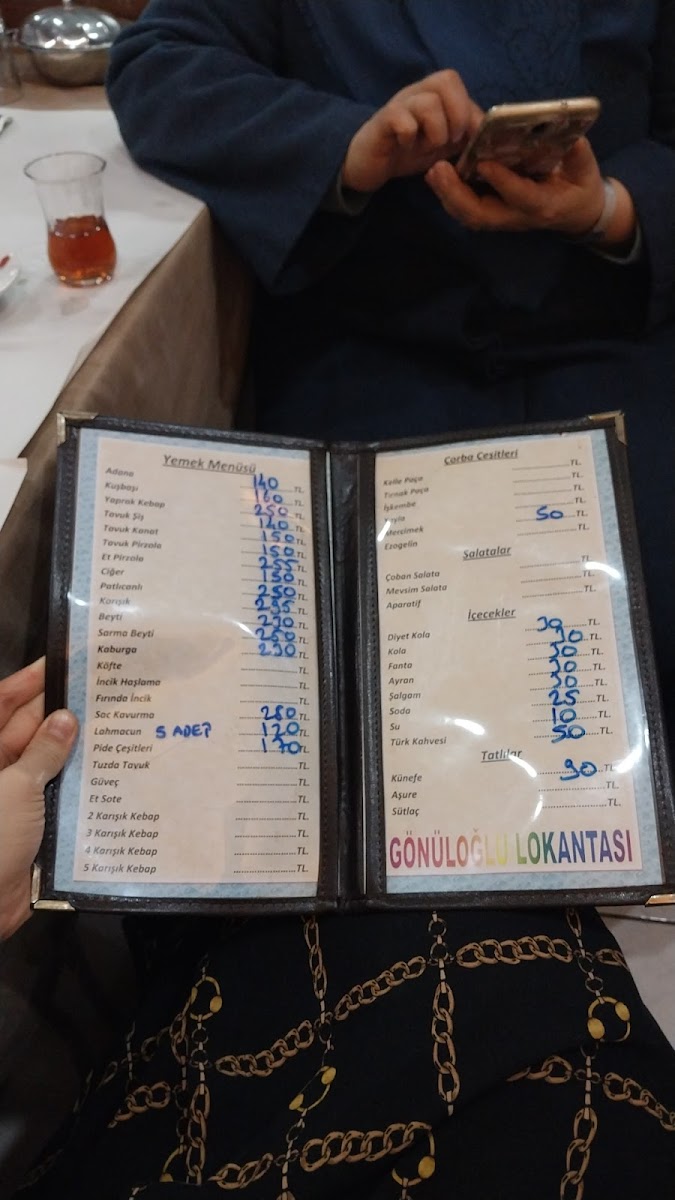 Yemek Menüsü
Adana 140 TL.
Kuşbaşı 160 TL.
Yaprak Kebap 250 TL.
Tavuk Şiş 140 TL.
Tavuk Kanat 150 TL.
Tavuk Pirzola 150 TL.
Et Pirzola TL.
Ciğer 150 TL.
Patlıcanlı 250 TL.
Karışık TL.
Beyti 230 TL.
Sarma Beyti 250 TL.
Kaburga 230 TL.
Köfte ........TL.
İncik Haşlama ........TL.
Fırında İncik ........TL.
Sac Kavurma TL.
Lahmacun 5 ADET 120 TL.
Pide Çeşitleri 170 TL.
Tuzda Tavuk ........TL.
Güveç ........TL.
Et Sote ........TL.
2 Karışık Kebap ........TL.
3 Karışık Kebap ........TL.
4 Karışık Kebap ........TL.
5 Karışık Kebap ........TL.
Çorba Çeşitleri
Kelle Paça ........TL.
Tırnak Paça ........TL.
İşkembe ........TL.
Yayla ........TL.
Mercimek 50 TL.
Ezogelin ........TL.
Salatalar
Çoban Salata ........TL.
Mevsim Salata ........TL.
Aparatif ........TL.
İçecekler
Diyet Kola 30 TL.
Kola TL.
Fanta TL.
Ayran 20 TL.
Şalgam 20 TL.
Soda 25 TL.
Su 10 TL.
Türk Kahvesi 50 TL.
Tatlılar
Künefe 90 TL.
Aşure ........TL.
Sütlaç ........TL.
GÖNÜLOĞLU LOKANTASI